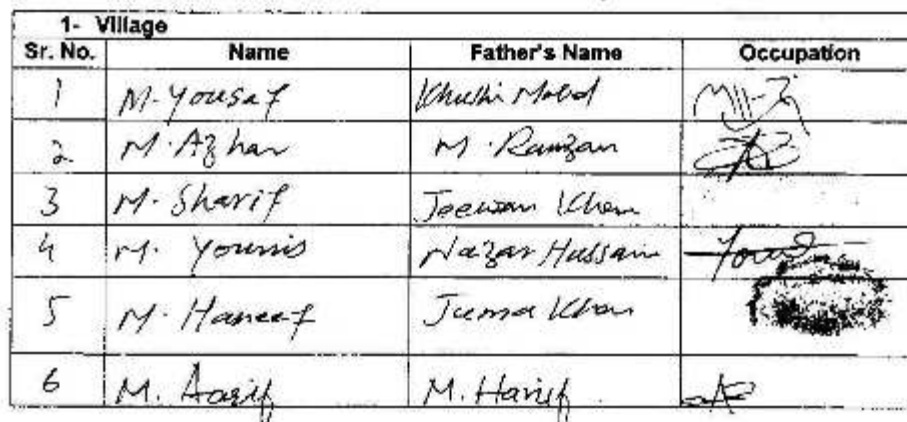 1- Village
Sr. No. Name Father's Name Occupation
1 M. Yousaf Khushi Mohd
2 M. Azhar M. Ramzan
3 M. Sharif Jeewan Khan
4 M. Younis Nazar Hussain
5 M. Haneef Juma Khan
6 M. Aasif M. Hanif